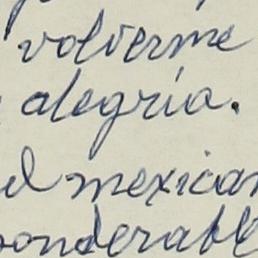 volverme
alegría.
el mexican
ponderable